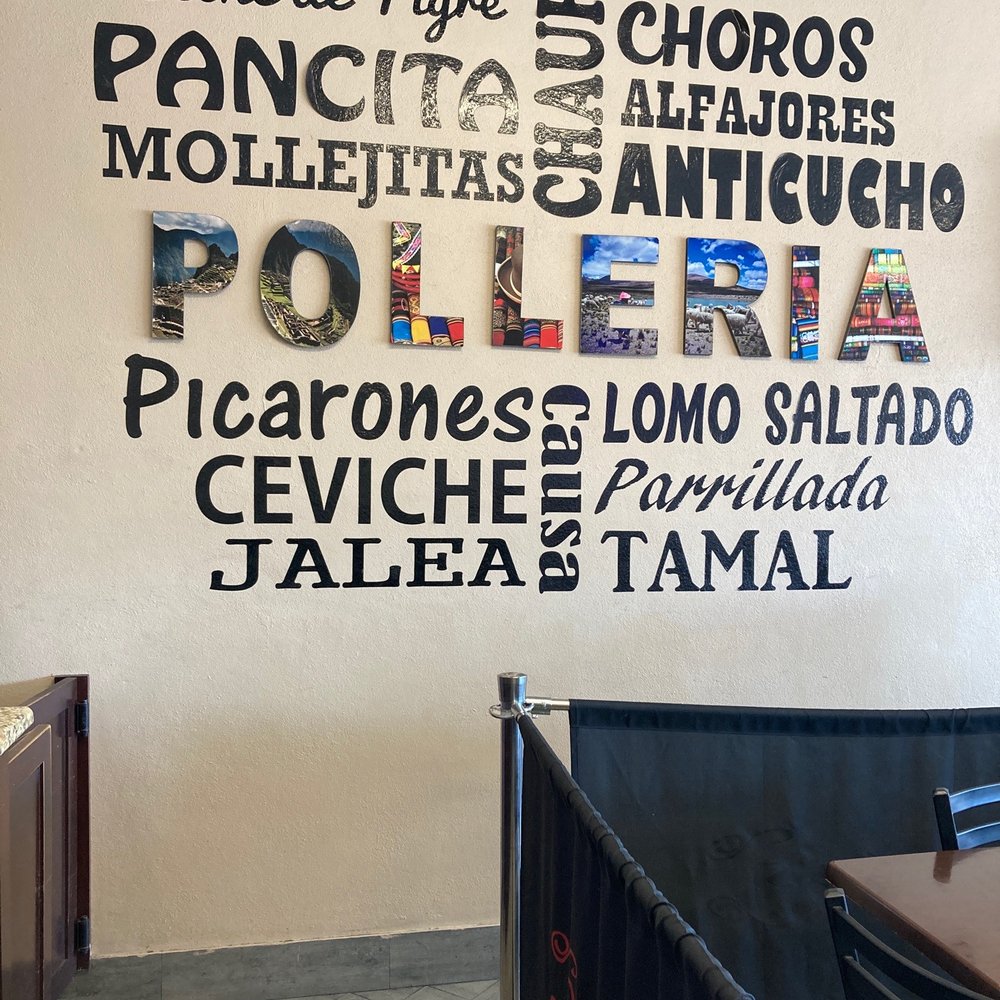 de Tigre
PANCITA
MOLLEJITAS
CHAUF
CHOROS
ALFAJORES
ANTICUCHO
POLLERIA
Picarones
CEVICHE
JALEA
Causa
LOMO SALTADO
Parrillada
TAMAL